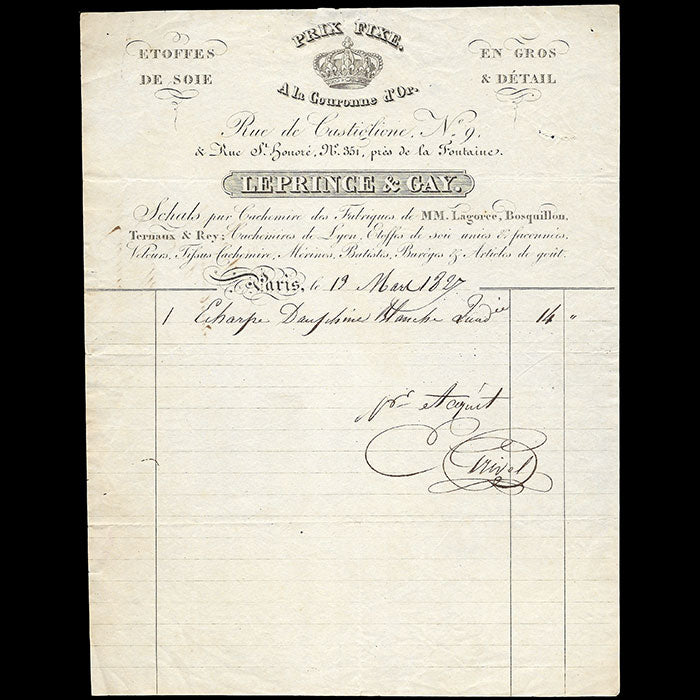 PRIX FIXE.
A la Couronne d'Or.
ETOFFES
DE SOIE
EN GROS
& DÉTAIL
Rue de Castiglione, No. 9,
& Rue St. Honoré, No. 351, près de la Fontaine.
LEPRINCE & GAY.
Schals pur Cachemire des Fabriques de MM. Lagorce, Bosquillon,
Ternaux & Rey; Cachemires de Lyon, Etoffes de soie unies & façonnées,
Velours, Tissus Cachemire, Mérinos, Batistes, Barèges & Articles de goût.
Paris, le 19 Mars 1827
1 Echarpe Dauphine Blanche 14 "
pr. acquit